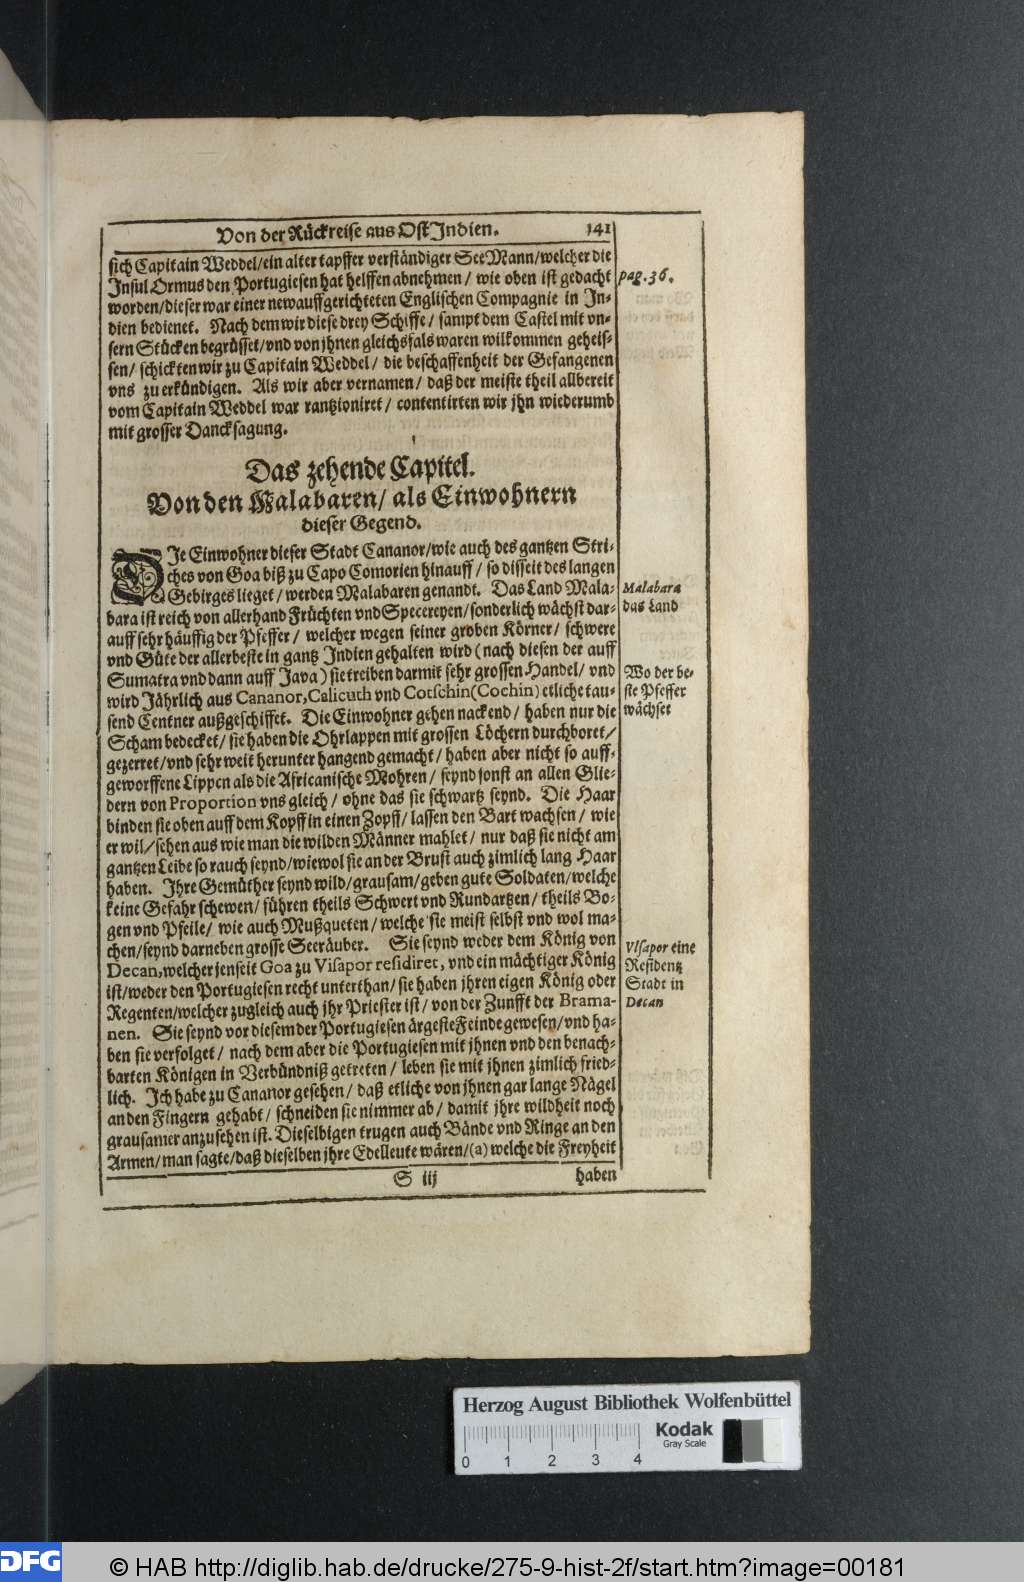 Von der Rückreise aus OstIndien. 141
sich Capitain Weddel/ein alter tapffer verständiger SeeMann/welcher die
Insul Ormus den Portugiesen hat helffen abnehmen/ wie oben ist gedacht
pag. 36.
worden/dieser war einer newauffgerichteten Englischen Compagnie in In-
dien bedienet. Nach dem wir diese drey Schiffe/ sampt dem Castel mit vn-
sern Stücken begrüsset/vnd von jhnen gleichsfals waren wilkommen geheis-
sen/ schickten wir zu Capitain Weddel/ die beschaffenheit der Gefangenen
vns zu erkündigen. Als wir aber vernamen/ daß der meiste theil allbereit
vom Capitain Weddel war rantzioniret/ contentirten wir jhn wiederumb
mit grosser Dancksagung.
Das zehende Capitel.
Von den Malabaren/ als Einwohnern
dieser Gegend.
DIe Einwohner dieser Stadt Cananor/wie auch des gantzen Stri-
ches von Goa biß zu Capo Comorien hinauff/ so disseit des langen
Gebirges lieget/ werden Malabaren genandt. Das Land Mala-
Malabara
das Land
bara ist reich von allerhand Früchten vnd Specereyen/sonderlich wächst dar-
auff sehr häuffig der Pfeffer/ welcher wegen seiner groben Körner/ schwere
vnd Güte der allerbeste in gantz Indien gehalten wird (nach diesen der auff
Sumatra vnd dann auff Java) sie treiben darmit sehr grossen Handel/ vnd
Wo der be-
ste Pfeffer
wächset
wird Jährlich aus Cananor, Calicuth vnd Cotschin (Cochin) etliche tau-
send Centner außgeschiffet. Die Einwohner gehen nackend/ haben nur die
Scham bedecket/ sie haben die Ohrlappen mit grossen Löchern durchboret/
gezerret/vnd sehr weit herunter hangend gemacht/ haben aber nicht so auff-
geworffene Lippen als die Africanische Mohren/ seynd sonst an allen Glie-
dern von Proportion vns gleich/ ohne das sie schwartz seynd. Die Haar
binden sie oben auff dem Kopff in einen Zopff/ lassen den Bart wachsen/ wie
er wil/sehen aus wie man die wilden Männer mahlet/ nur daß sie nicht am
gantzen Leibe so rauch seynd/wiewol sie an der Brust auch zimlich lang Haar
haben. Ihre Gemüther seynd wild/grausam/geben gute Soldaten/welche
keine Gefahr schewen/ führen theils Schwert vnd Rundartzen/ theils Bo-
gen vnd Pfeile/ wie auch Mußqueten/ welche sie meist selbst vnd wol ma-
chen/seynd darneben grosse Seeräuber. Sie seynd weder dem König von
Decan, welcher jenseit Goa zu Visapor residiret, vnd ein mächtiger König
Visapor eine
Residentz
Stadt in
Decan
ist/weder den Portugiesen recht unterthan/ sie haben jhren eigen König oder
Regenten/welcher zugleich auch jhr Priester ist/ von der Zunfft der Brama-
nen. Sie seynd vor diesem der Portugiesen ärgeste Feinde gewesen/vnd ha-
ben sie verfolget/ nach dem aber die Portugiesen mit jhnen vnd den benach-
barten Königen in Verbündniß getreten/ leben sie mit jhnen zimlich fried-
lich. Ich habe zu Cananor gesehen/ daß etliche von jhnen gar lange Nägel
an den Fingern gehabt/ schneiden sie nimmer ab/ damit jhre wildheit noch
grausamer anzusehen ist. Dieselbigen trugen auch Bände vnd Ringe an den
Armen/man sagte/daß dieselben jhre Edelleute wären/(a) welche die Freyheit
S iij haben
Herzog August Bibliothek Wolfenbüttel
Kodak
Gray Scale
0 1 2 3 4
DFG © HAB http://diglib.hab.de/drucke/275-9-hist-2f/start.htm?image=00181